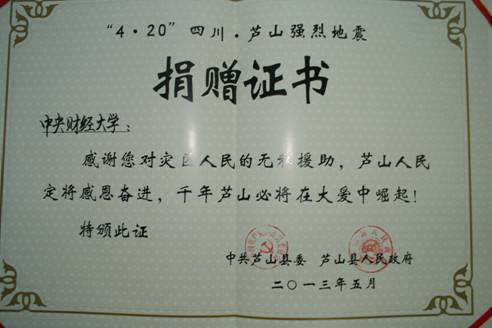 “4·20”四川·芦山强烈地震
捐赠证书
中央财经大学：
感谢您对灾区人民的无私援助，芦山人民
定将感恩奋进，千年芦山必将在大爱中崛起！
特颁此证
中共芦山县委 芦山县人民政府
二〇一三年五月